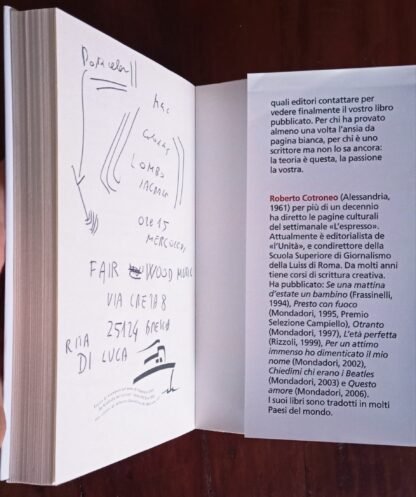 ORE 15
MERCOLEDI
FAIR WOOD MUSIC
VIA CRETA 8
25124
RITA
DI LUCA
quali editori contattare per
vedere finalmente il vostro libro
pubblicato. Per chi ha provato
almeno una volta l'ansia da
pagina bianca, per chi è uno
scrittore ma non lo sa ancora:
la teoria è questa, la passione
la vostra.
Roberto Cotroneo (Alessandria,
1961) per più di un decennio
ha diretto le pagine culturali
del settimanale «L'espresso».
Attualmente è editorialista de
«l'Unità», e condirettore della
Scuola Superiore di Giornalismo
della Luiss di Roma. Da molti anni
tiene corsi di scrittura creativa.
Ha pubblicato: Se una mattina
d'estate un bambino (Frassinelli,
1994), Presto con fuoco
(Mondadori, 1995, Premio
Selezione Campiello), Otranto
(Mondadori, 1997), L'età perfetta
(Rizzoli, 1999), Per un attimo
immenso ho dimenticato il mio
nome (Mondadori, 2002),
Chiedimi chi erano i Beatles
(Mondadori, 2003) e Questo
amore (Mondadori, 2006).
I suoi libri sono tradotti in molti
Paesi del mondo.